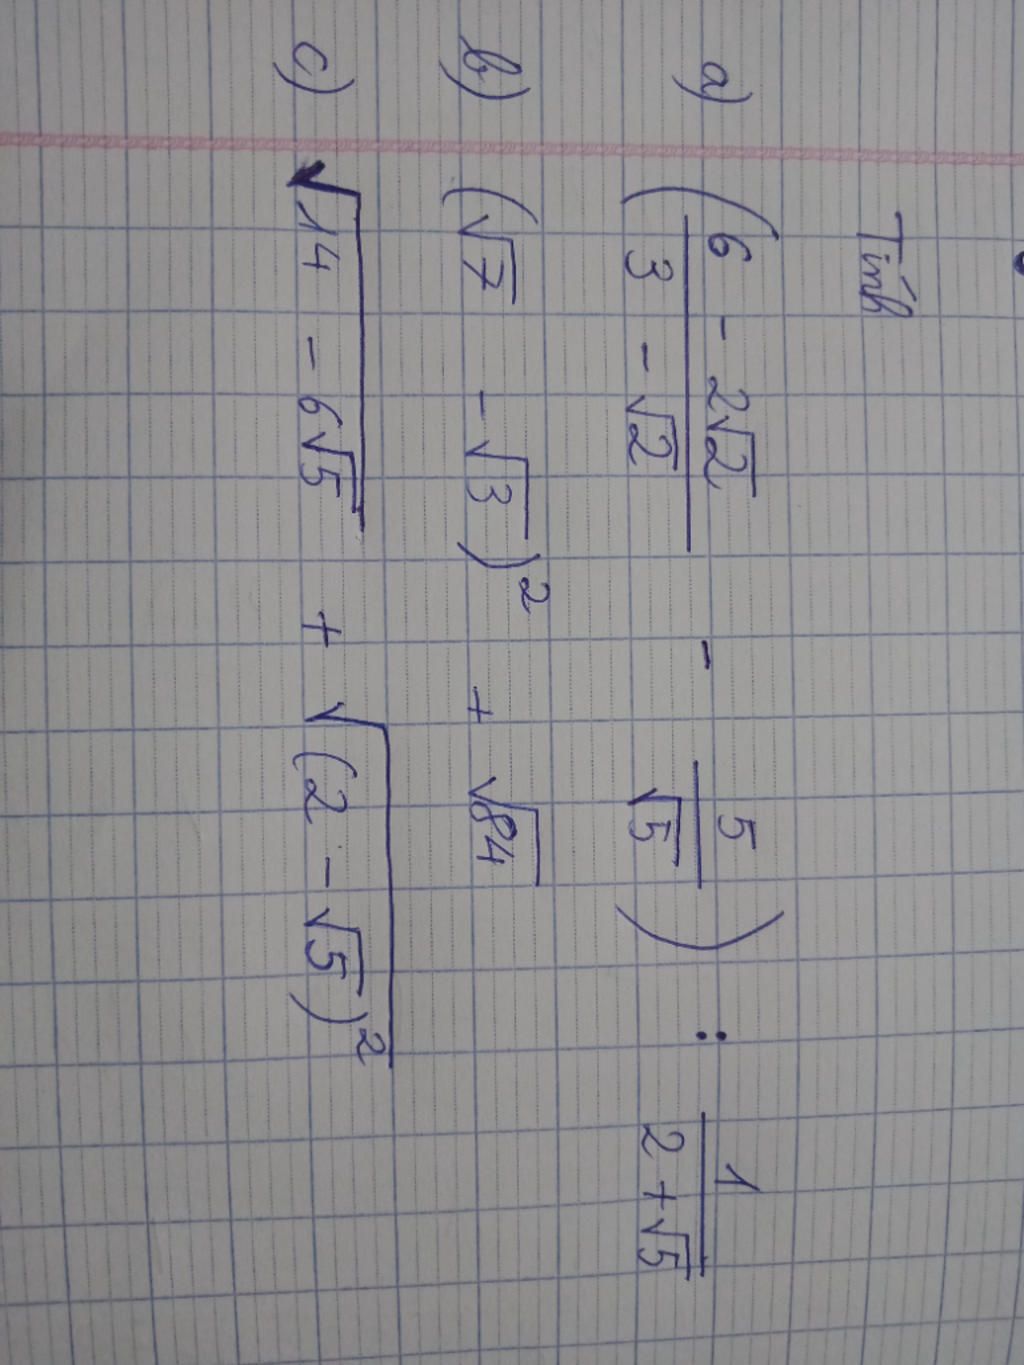 Tính
a) (6 - 2√2 / 3 - √2 - 5/√5) : 1 / 2 + √5
b) (√7 - √3)² + √84
c) √14 - 6√5 + √(2 - √5)²